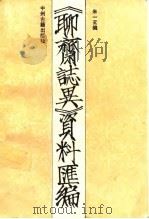 朱一玄编
《聊齋誌異》資料匯編
中州古籍出版社